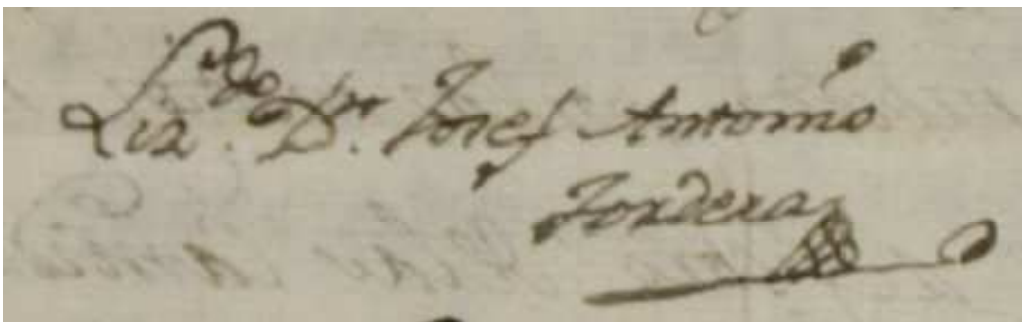 Liz.do Dn. Josef Antonio
Tordera